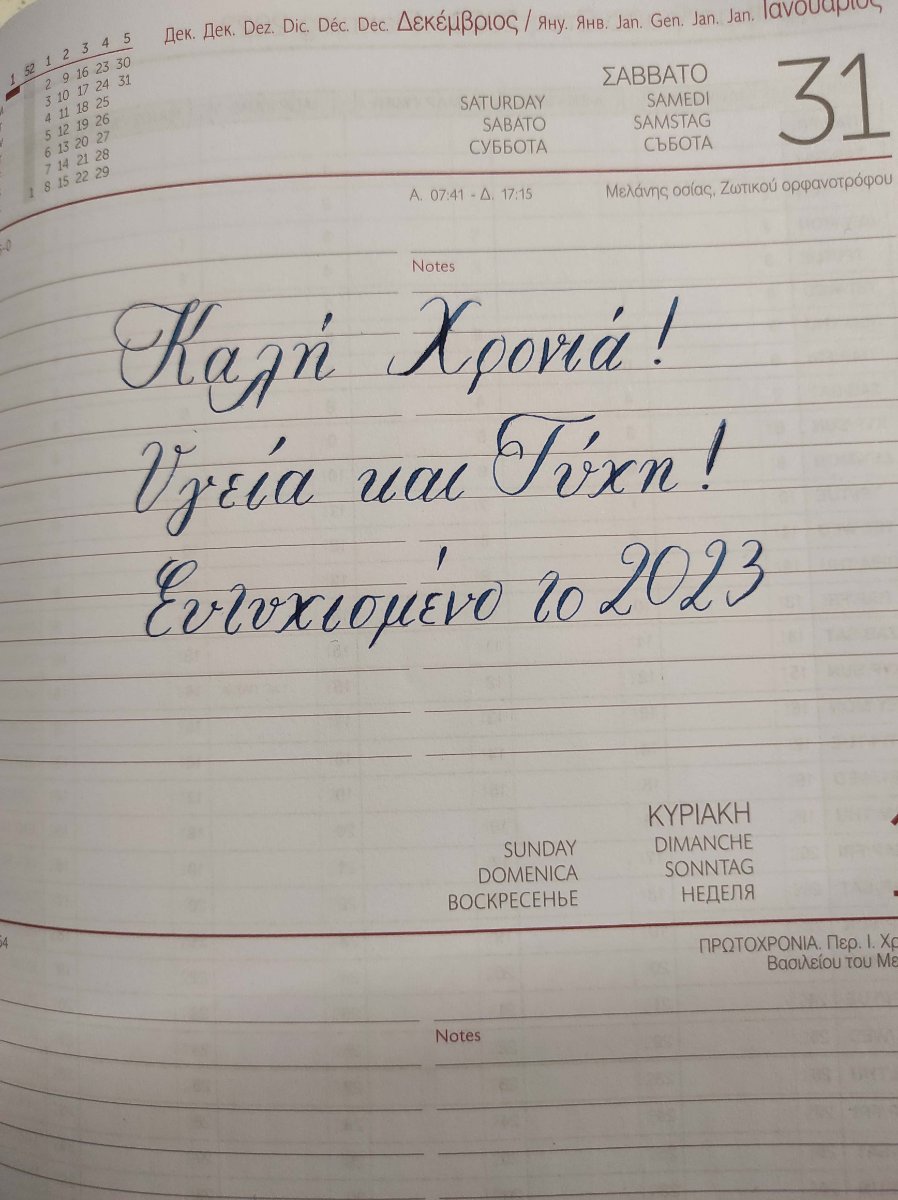 Дек. Дек. Dez. Dic. Déc. Dec. Δεκέμβριος / Яну. Янв. Jan. Gen. Jan. Jan. Ιανουάριος
1 52 1 2 3 4 5
2 9 16 23 30
3 10 17 24 31
4 11 18 25
5 12 19 26
6 13 20 27
7 14 21 28
1 8 15 22 29
ΣΑΒΒΑΤΟ
SATURDAY SAMEDI
SABATO SAMSTAG
СУББОТА СЪБОТА
31
Α. 07:41 - Δ. 17:15 Μελάνης οσίας, Ζωτικού ορφανοτρόφου
Notes
Καλή Χρονιά!
Υγεία και Τύχη!
Ευτυχισμένο το 2023
ΚΥΡΙΑΚΗ
SUNDAY DIMANCHE
DOMENICA SONNTAG
ВОСКРЕСЕНЬЕ НЕДЕЛЯ
ΠΡΩΤΟΧΡΟΝΙΑ. Περ. Ι. Χρ
Βασιλείου του Με
Notes